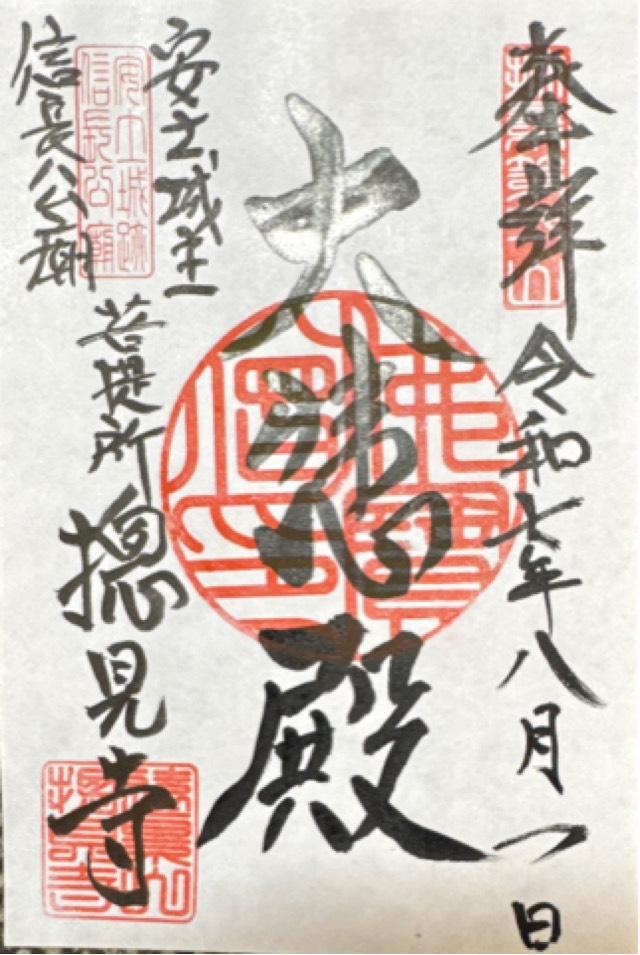 奉拝
令和七年八月一日
大悲殿
安土城主
信長公廟
安土城跡
信長公廟
菩提所
摠見寺